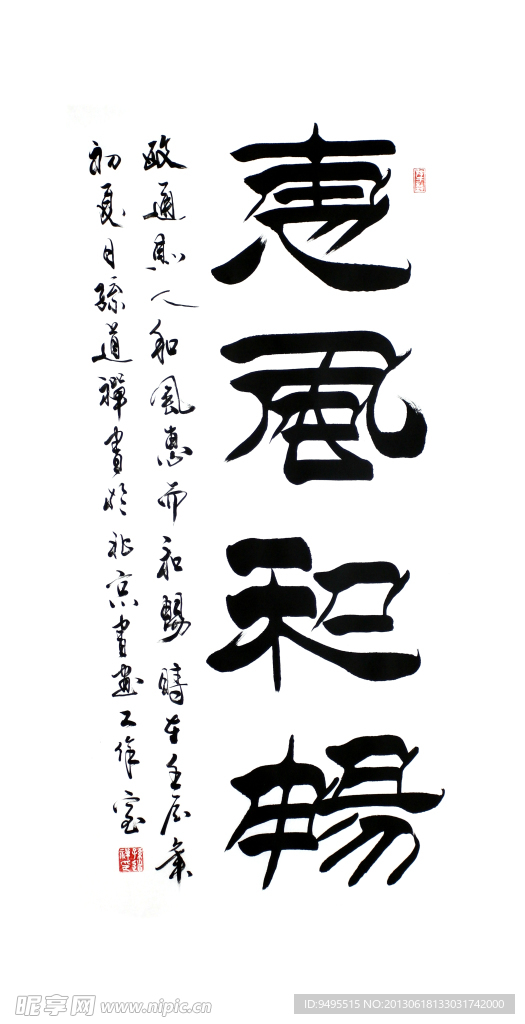 惠風和暢
政通則人和風惠而和暢時在壬辰年
初夏月孫道禪書於北京書畫工作室
昵享网 www.nipic.com
ID:9495515 NO:20130618133031742000